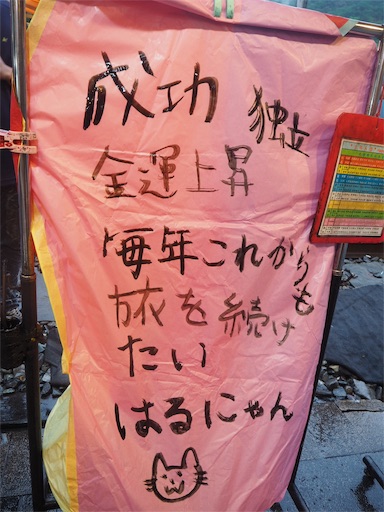 成功 独立
金運上昇
毎年これからも
旅を続け
たい
はるにゃん